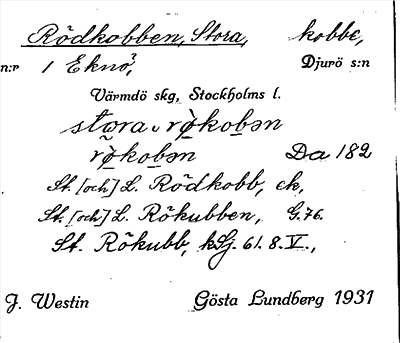 Rödkobben, Stora, kobbe,
n:r 1 Eknö, Djurö s:n
Värmdö skg, Stockholms l.
stωra rø̀kobən
rø̀kobən Da 182
St. [och] L. Rödkobb, ek,
St. [och] L. Rökubben, G. 76.
St. Rökubb, kSj. 61. 8. V.,
J. Westin Gösta Lundberg 1931